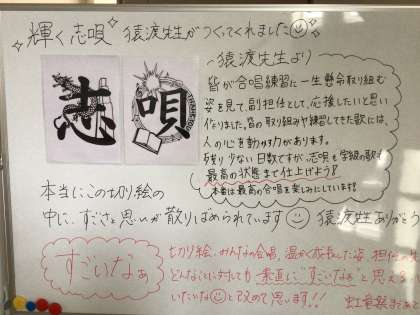 輝く志唄 猿渡先生がつくってくれました
〜猿渡先生より
皆が合唱練習に一生懸命取り組む
姿を見て、副担任として、応援したいと思い
作りました。皆の取り組みや練習してきた歌には、
人の心を動かす力があります。
残り少ない日数ですが、志唄も学級の歌も
最高の状態まで仕上げよう!
本番は最高の合唱を楽しみにしています!
志 唄
本当にこの切り絵の
中に、すごさと思いが散りばめられています 猿渡先生ありがとう
すごいなぁ
切り絵、みんなの合唱、温かく成長した姿、担任の先
どんなことに対しても素直に"すごいなぁ"と思える
いたいな と改めて思います!!
虹竜祭まであと